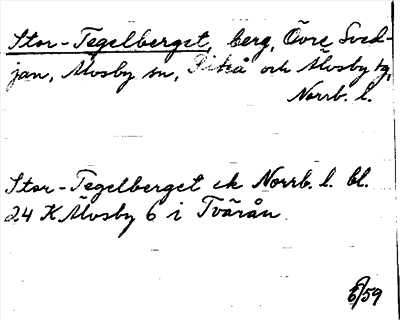 Stor-Tegelberget, berg, Övre Sved-
jan, Älvsby sn, Piteå och Älvsby tg,
Norrb. l.
Stor-Tegelberget ek Norrb. l. bl.
24 K Älvsby 6 i Tvärån.
/59